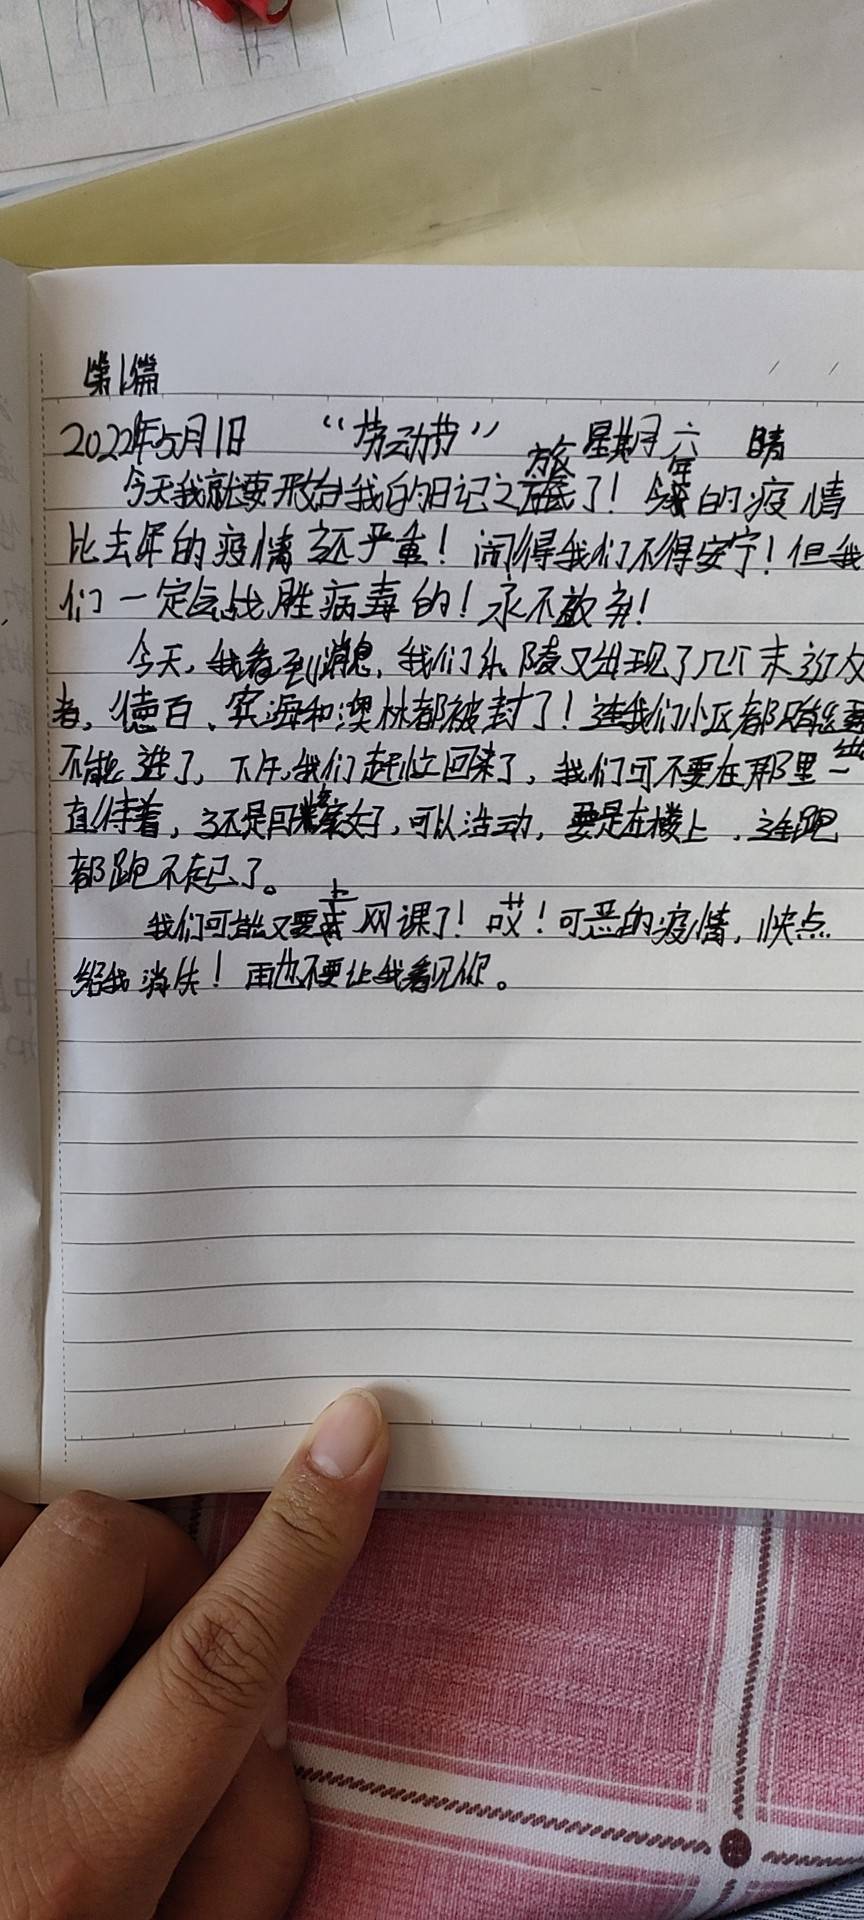 第1篇
2022年5月1日 “劳动节” 星期六 晴
今天我就要开始我的日记之旅了！今年的疫情
比去年的疫情还严重！闹得我们不得安宁！但我
们一定会战胜病毒的！永不放弃！
今天，我看到消息，我们乐陵又出现了几个
者，德百、滨海和澳林都被封了！连我们小区都只能
不能进了，下午，我们赶忙回来了，我们可不要在那里一
直待着，还是回老家好，可以活动，要是在楼上，连跑
都跑不起了。
我们可能又要上网课了！哎！可恶的疫情，快点
给我消失！再也不要让我看见你。